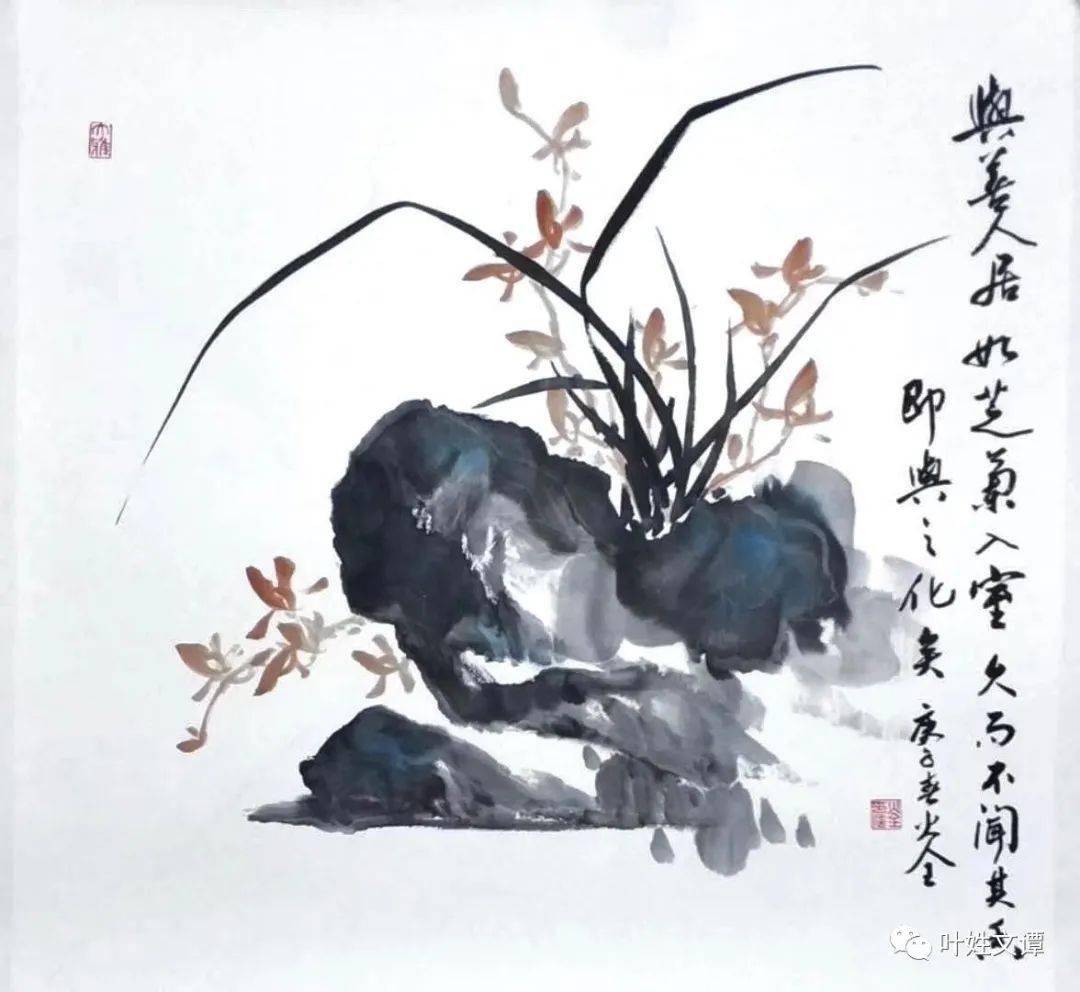 與善人居如芝蘭入室久而不聞其香
即與之化矣 庚子春火全
大雅
叶姓文谭